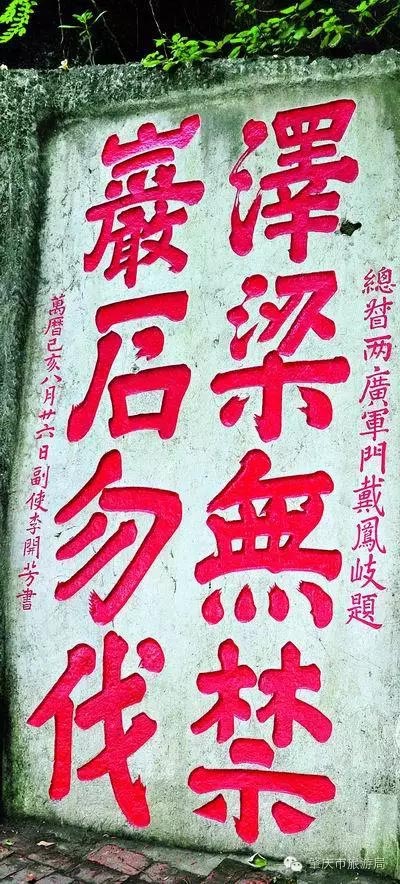 總督两廣軍門戴鳳岐題
澤梁無禁
巖石勿伐
萬曆己亥八月廿六日副使李開芳書
肇庆市旅游局